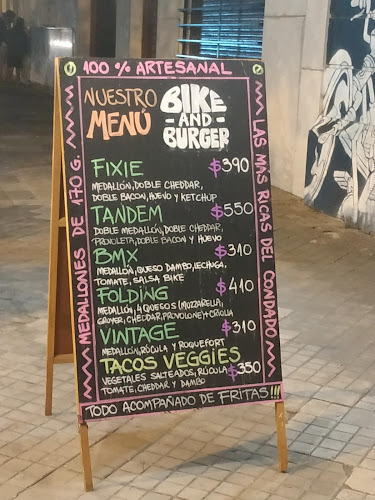 100% ARTESANAL
NUESTRO
MENÚ
BIKE
-AND-
BURGER
MEDALLONES DE 170 G.
LAS MAS RICAS DEL CONDADO
FIXIE $390
MEDALLÓN, DOBLE CHEDDAR,
DOBLE BACON, HUEVO Y KETCHUP
TANDEM $550
DOBLE MEDALLÓN, DOBLE CHEDDAR,
PROVOLETA, DOBLE BACON Y HUEVO
BMX $310
MEDALLON, QUESO DAMBO, LECHUGA,
TOMATE, SALSA BIKE
FOLDING $410
MEDALLÓN, 4 QUESOS (MOZZARELLA,
GRUYER, CHEDDAR, PROVOLONE) + CRIOLLA
VINTAGE $310
MEDALLON, RÚCULA Y ROQUEFORT
TACOS VEGGIES
VEGETALES SALTEADOS, RÚCULA $350
TOMATE, CHEDDAR Y DAMBO
TODO ACOMPAÑADO DE FRITAS!!!